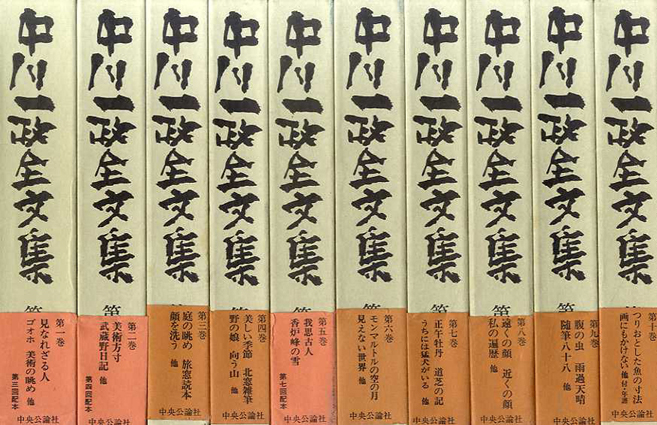 中川一政全文集
第
第一巻
見なれざる人
ゴオホ 美術の眺め 他
第三回配本
中央公論社
中川一政全文集
第
第二巻
美術方寸
武蔵野日記 他
第四回配本
中央公論社
中川一政全文集
第
第三巻
庭の眺め 旅窓読本
顔を洗う 他
中央公論社
中川一政全文集
第
第四巻
美しい季節 北窓雑筆
野の娘 向う山 他
中央公論社
中川一政全文集
第
第五巻
我思古人
香炉峰の雪
第七回配本
中央公論社
中川一政全文集
第
第六巻
モンマルトルの空の月
見えない世界 他
中央公論社
中川一政全文集
第
第七巻
正午牡丹 道芝の記
うちには猛犬がいる 他
中央公論社
中川一政全文集
第
第八巻
遠くの顔 近くの顔
私の遍歴 他
中央公論社
中川一政全文集
第
第九巻
腹の虫 雨過天晴
随筆八十八 他
中央公論社
中川一政全文集
第
第十巻
つりおとした魚の寸法
画にもかけない 他 付・年譜
中央公論社